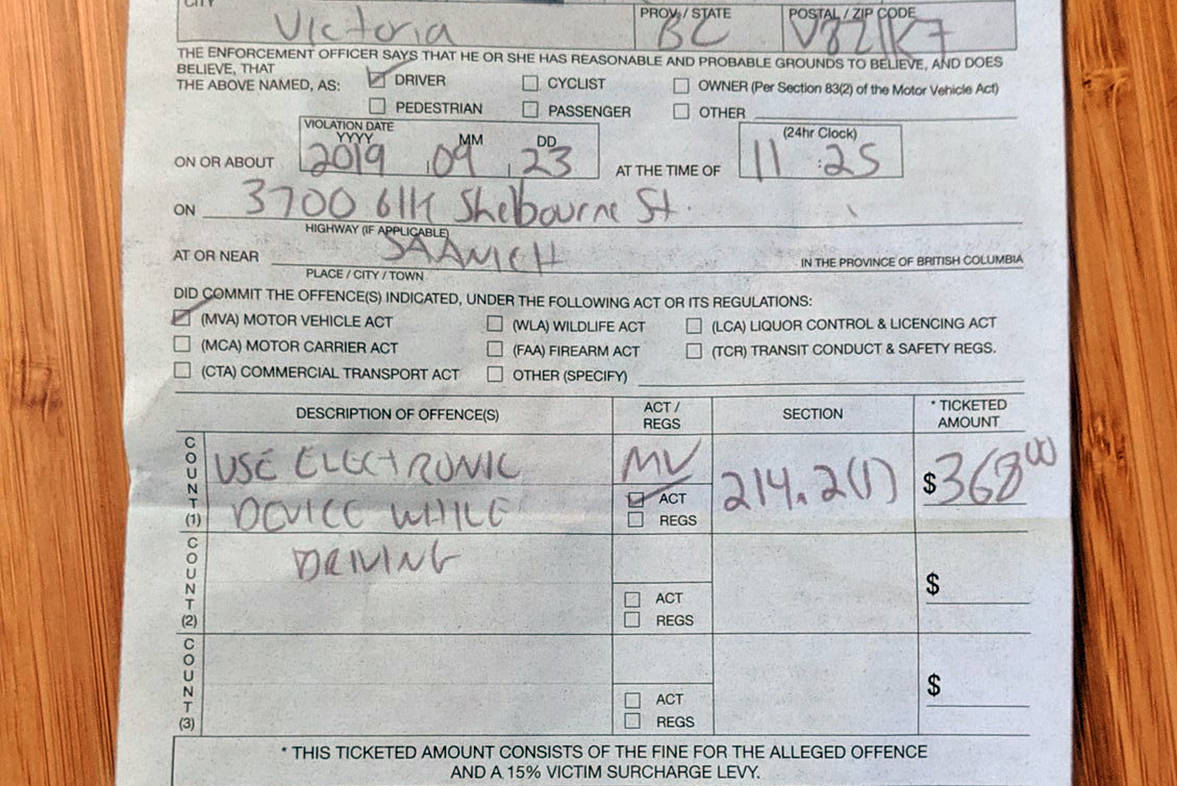 CITY PROV / STATE POSTAL / ZIP CODE
Victoria BC V8Z1K7
THE ENFORCEMENT OFFICER SAYS THAT HE OR SHE HAS REASONABLE AND PROBABLE GROUNDS TO BELIEVE, AND DOES
BELIEVE, THAT
THE ABOVE NAMED, AS: DRIVER CYCLIST OWNER (Per Section 83(2) of the Motor Vehicle Act)
PEDESTRIAN PASSENGER OTHER
VIOLATION DATE (24hr Clock)
YYYY MM DD
ON OR ABOUT 2019 09 23 AT THE TIME OF 11:25
ON 3700 blk Shelbourne St.
HIGHWAY (IF APPLICABLE)
AT OR NEAR SAANICH IN THE PROVINCE OF BRITISH COLUMBIA
PLACE / CITY / TOWN
DID COMMIT THE OFFENCE(S) INDICATED, UNDER THE FOLLOWING ACT OR ITS REGULATIONS:
(MVA) MOTOR VEHICLE ACT (WLA) WILDLIFE ACT (LCA) LIQUOR CONTROL & LICENCING ACT
(MCA) MOTOR CARRIER ACT (FAA) FIREARM ACT (TCR) TRANSIT CONDUCT & SAFETY REGS.
(CTA) COMMERCIAL TRANSPORT ACT OTHER (SPECIFY)
DESCRIPTION OF OFFENCE(S) ACT / REGS SECTION * TICKETED AMOUNT
COUNT (1) USE ELECTRONIC MV 214.2(1) $368 00
DEVICE WHILE ACT
REGS
COUNT (2) DRIVING $
ACT
REGS
COUNT (3) $
ACT
REGS
* THIS TICKETED AMOUNT CONSISTS OF THE FINE FOR THE ALLEGED OFFENCE
AND A 15% VICTIM SURCHARGE LEVY.